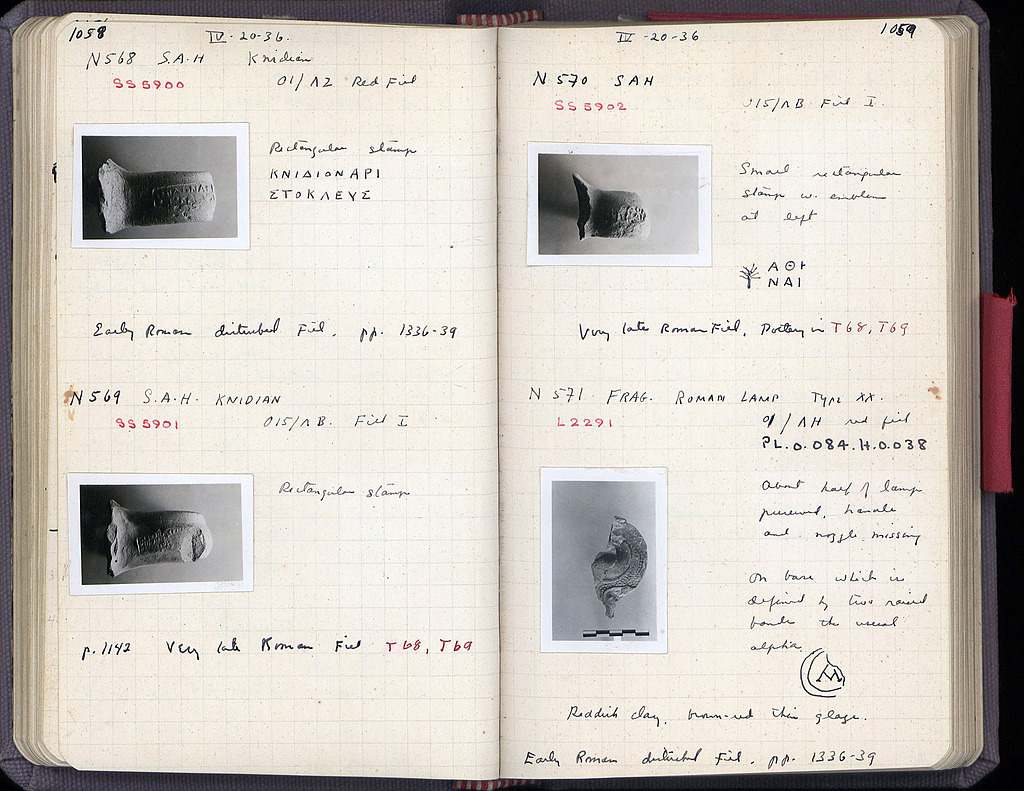 1058
IV-20-36.
N568 S.A.H Knidian
SS 5900
O1/ΛZ Red Fill
Rectangular stamp
ΚΝΙΔΙΟΝΑΡΙ
ΣΤΟΚΛΕΥΣ
Early Roman disturbed Fill. pp. 1336-39
N569 S.A.H. KNIDIAN
SS 5901
O15/ΛB. Fill I
Rectangular stamp
p. 1142 Very late Roman Fill T68, T69
1059
IV-20-36
N570 SAH
SS 5902
O15/ΛB Fill I.
Small rectangular
stamp w. emblem
at left
ΑΘΗ
ΝΑΙ
Very late Roman Fill, Pottery in T68, T69
N 571 FRAG. ROMAN LAMP TYPE XX.
L2291
/ΛH red fill
P.L. 0.084. H. 0.038
About half of lamp
preserved, handle
and nozzle missing
On base which is
defined by two raised
bands the usual
alpha.
Reddish clay, brown-red thin glaze.
Early Roman disturbed fill. pp. 1336-39